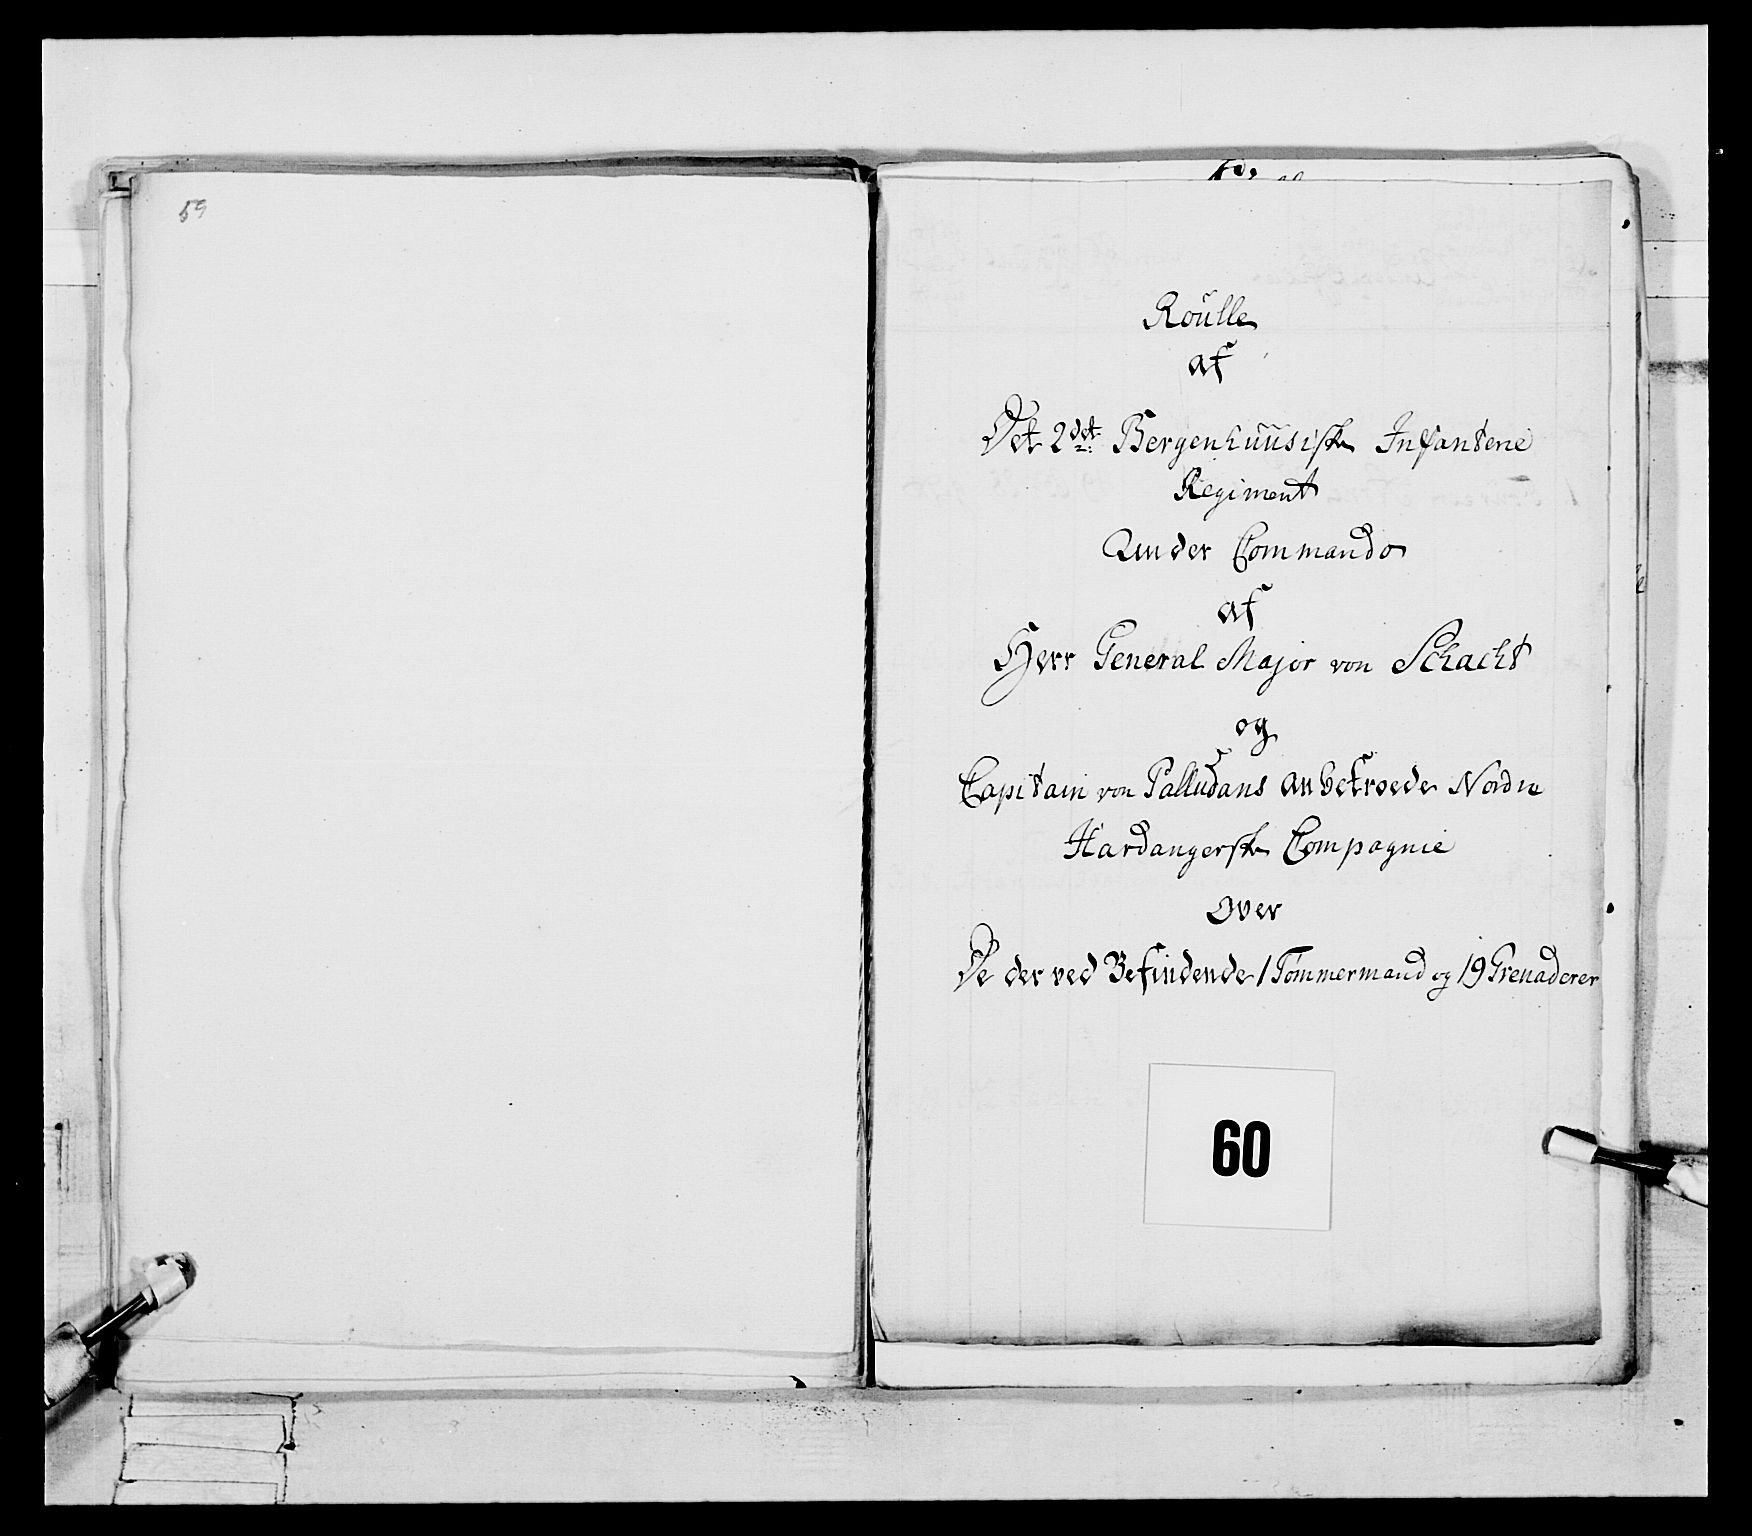 59
Roülle
af
Det 2det Bergenhuusiske Infanterie
Regiment
Under Commando
af
Herr General Major von Schacht
og
Capitain von Palludans anbetroede Nordre
Hardangerske Compagnie
Over
De der ved Befindende 1 Tömmermand og 19 Grenaderer
60